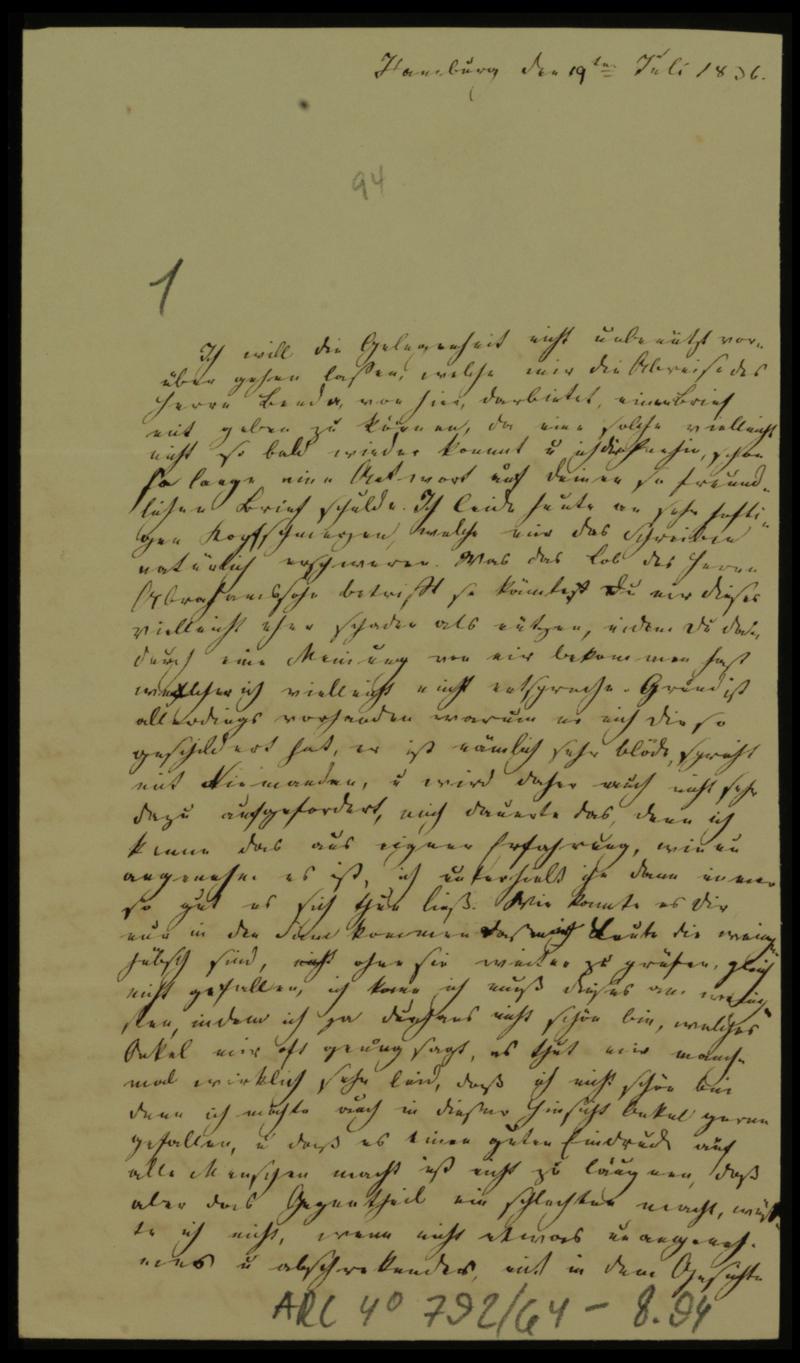 Hamburg den 19ten Juli 1836.
94
1
Ich will die Gelegenheit nicht unbenützt vor-
über gehen laßen, welche mir die Abreise des
Herrn Benda, von hier, darbietet, einen Brief
mit geben zu können, da eine solche vielleicht
nicht so bald wieder kommt u ich dir schon
so lange eine Antwort auf deinen so freund-
lichen Brief schulde. Ich leide heute an sehr hefti-
gen Kopfschmerzen, welche mir das Schreiben
natürlich erschweren. Was das Lob des Herrn
Abrahamssohn betrifft so könntest Du mir dieses
vielleicht eher schaden als nützen, indem Du da-
durch eine Meinung von mir bekommen hast
welcher ich vielleicht nicht entspreche. Grund ist
allerdings vorhanden warum er mich dir so
geschildert hat, er ist nämlich sehr blöde, spricht
mit Niemanden, u wird daher auch nicht sehr
dazu aufgefordert, mich dauerte das, denn ich
kenne das aus eigner Erfahrung, wie un
angenehm es ist, ich unterhielt ihn dann immer
so gut es sich thun ließ. Wie konnte es Dir
nun in den Sinn kommen daß mich Leute die wenig
hübsch sind, nicht ohne sie weiter zu prüfen, gleich
nicht gefallen, ich kann ich muß dieses am wenig-
sten, indem ich ja durchaus nicht schön bin, welches
Onkel mir oft genung sagt, es thut mir manch-
mal wirklich sehr leid, daß ich nicht schön bin
denn ich möchte auch in dieser Hinsicht Onkel gerne
gefallen, u daß es einen guten Eindruck auf
alle Menschen macht ist nicht zu läugnen, daß
aber das Gegentheil ein schlechten macht, wüß-
te ich nicht, wenn nicht etwas unangeneh-
mes u abschrekendes, mit in dem Gesichte
ARC 4° 792/64 - 8.94